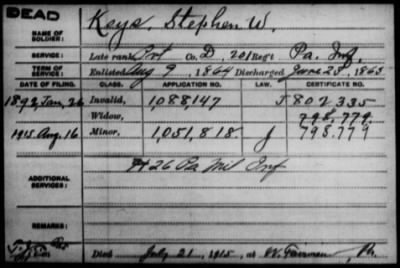 DEAD
NAME OF SOLDIER: Keys, Stephen W.
SERVICE: Late rank Pvt Co. D, 201 Reg't Pa. Inf.
TERM OF SERVICE: Enlisted Aug 9, 1864 Discharged June 25, 1865
DATE OF FILING. CLASS. APPLICATION NO. LAW. CERTIFICATE NO.
1892, Jan, 26 Invalid, 1,088,147 J 802 335
Widow, 798,779
1915 Aug. 16 Minor, 1,051,818 J 798.779
ADDITIONAL SERVICES: 26 Pa Mil Inf
REMARKS:
Died July 21, 1915, at W. Pa.